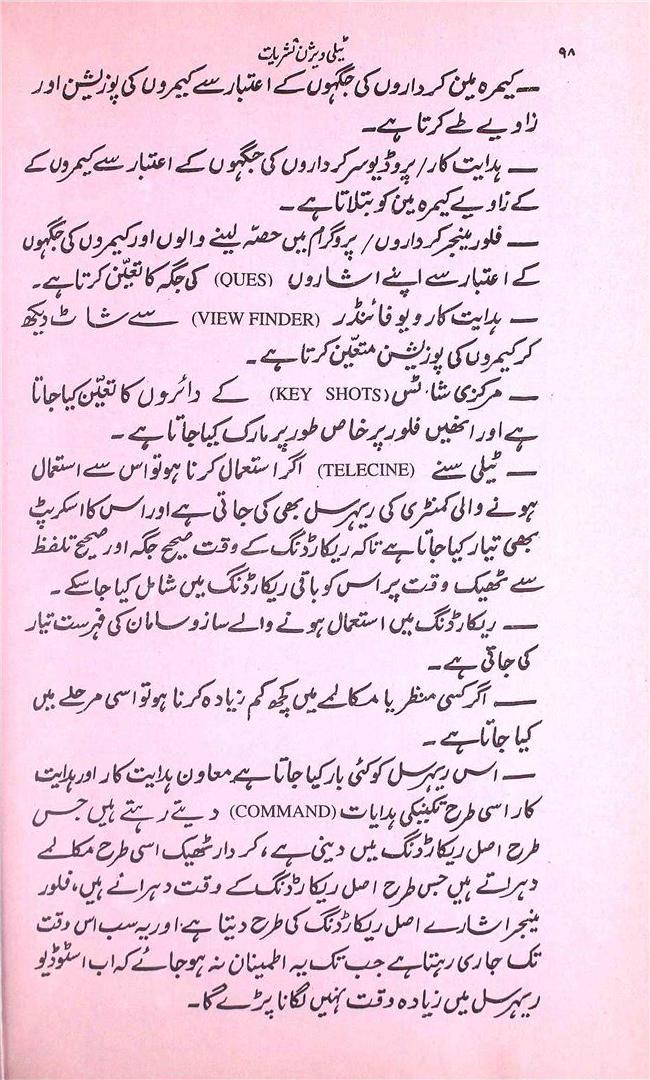 ۹۸ ٹیلی ویژن نشریات
— کیمرہ مین کرداروں کی جگہوں کے اعتبار سے کیمروں کی پوزیشن اور
زاویے طے کرتا ہے۔
— ہدایت کار/پروڈیوسر کرداروں کی جگہوں کے اعتبار سے کیمروں کے
کے زاویے کیمرہ مین کو بتلاتا ہے۔
— فلور مینجر کرداروں/ پروگرام میں حصّہ لینے والوں اور کیمروں کی جگہوں
کے اعتبار سے اپنے اشاروں (QUES) کی جگہ کا تعیّن کرتا ہے۔
— ہدایت کار ویو فائنڈر (VIEW FINDER) سے شاٹ دیکھ
کر کیمروں کی پوزیشن متعیّن کرتا ہے۔
— مرکزی شاٹس (KEY SHOTS) کے دائروں کا تعیّن کیا جاتا
ہے اور انھیں فلور پر خاص طور پر مارک کیا جاتا ہے۔
— ٹیلی سنے (TELECINE) اگر استعمال کرنا ہو تو اس سے استعمال
ہونے والی کمنٹری کی ریہرسل بھی کی جاتی ہے اور اس کا اسکرپٹ
بھی تیار کیا جاتا ہے تاکہ ریکارڈنگ کے وقت صحیح جگہ اور صحیح تلفظ
سے ٹھیک وقت پر اس کو باقی ریکارڈنگ میں شامل کیا جا سکے۔
— ریکارڈنگ میں استعمال ہونے والے ساز و سامان کی فہرست تیار
کی جاتی ہے۔
— اگر کسی منظر یا مکالمے میں کچھ کم زیادہ کرنا ہو تو اسی مرحلے میں
کیا جاتا ہے۔
— اس ریہرسل کو کئی بار کیا جاتا ہے معاون ہدایت کار اور ہدایت
کار اسی طرح تکنیکی ہدایات (COMMAND) دیتے رہتے ہیں جس
طرح اصل ریکارڈنگ میں دینی ہے، کردار ٹھیک اسی طرح مکالمے
دہراتے ہیں جس طرح اصل ریکارڈنگ کے وقت دہرانے ہیں، فلور
مینجر اشارے اصل ریکارڈنگ کی طرح دیتا ہے، اور یہ سب اس وقت
تک جاری رہتا ہے جب تک یہ اطمینان نہ ہو جائے کہ اب اسٹوڈیو
ریہرسل میں زیادہ وقت نہیں لگانا پڑے گا۔